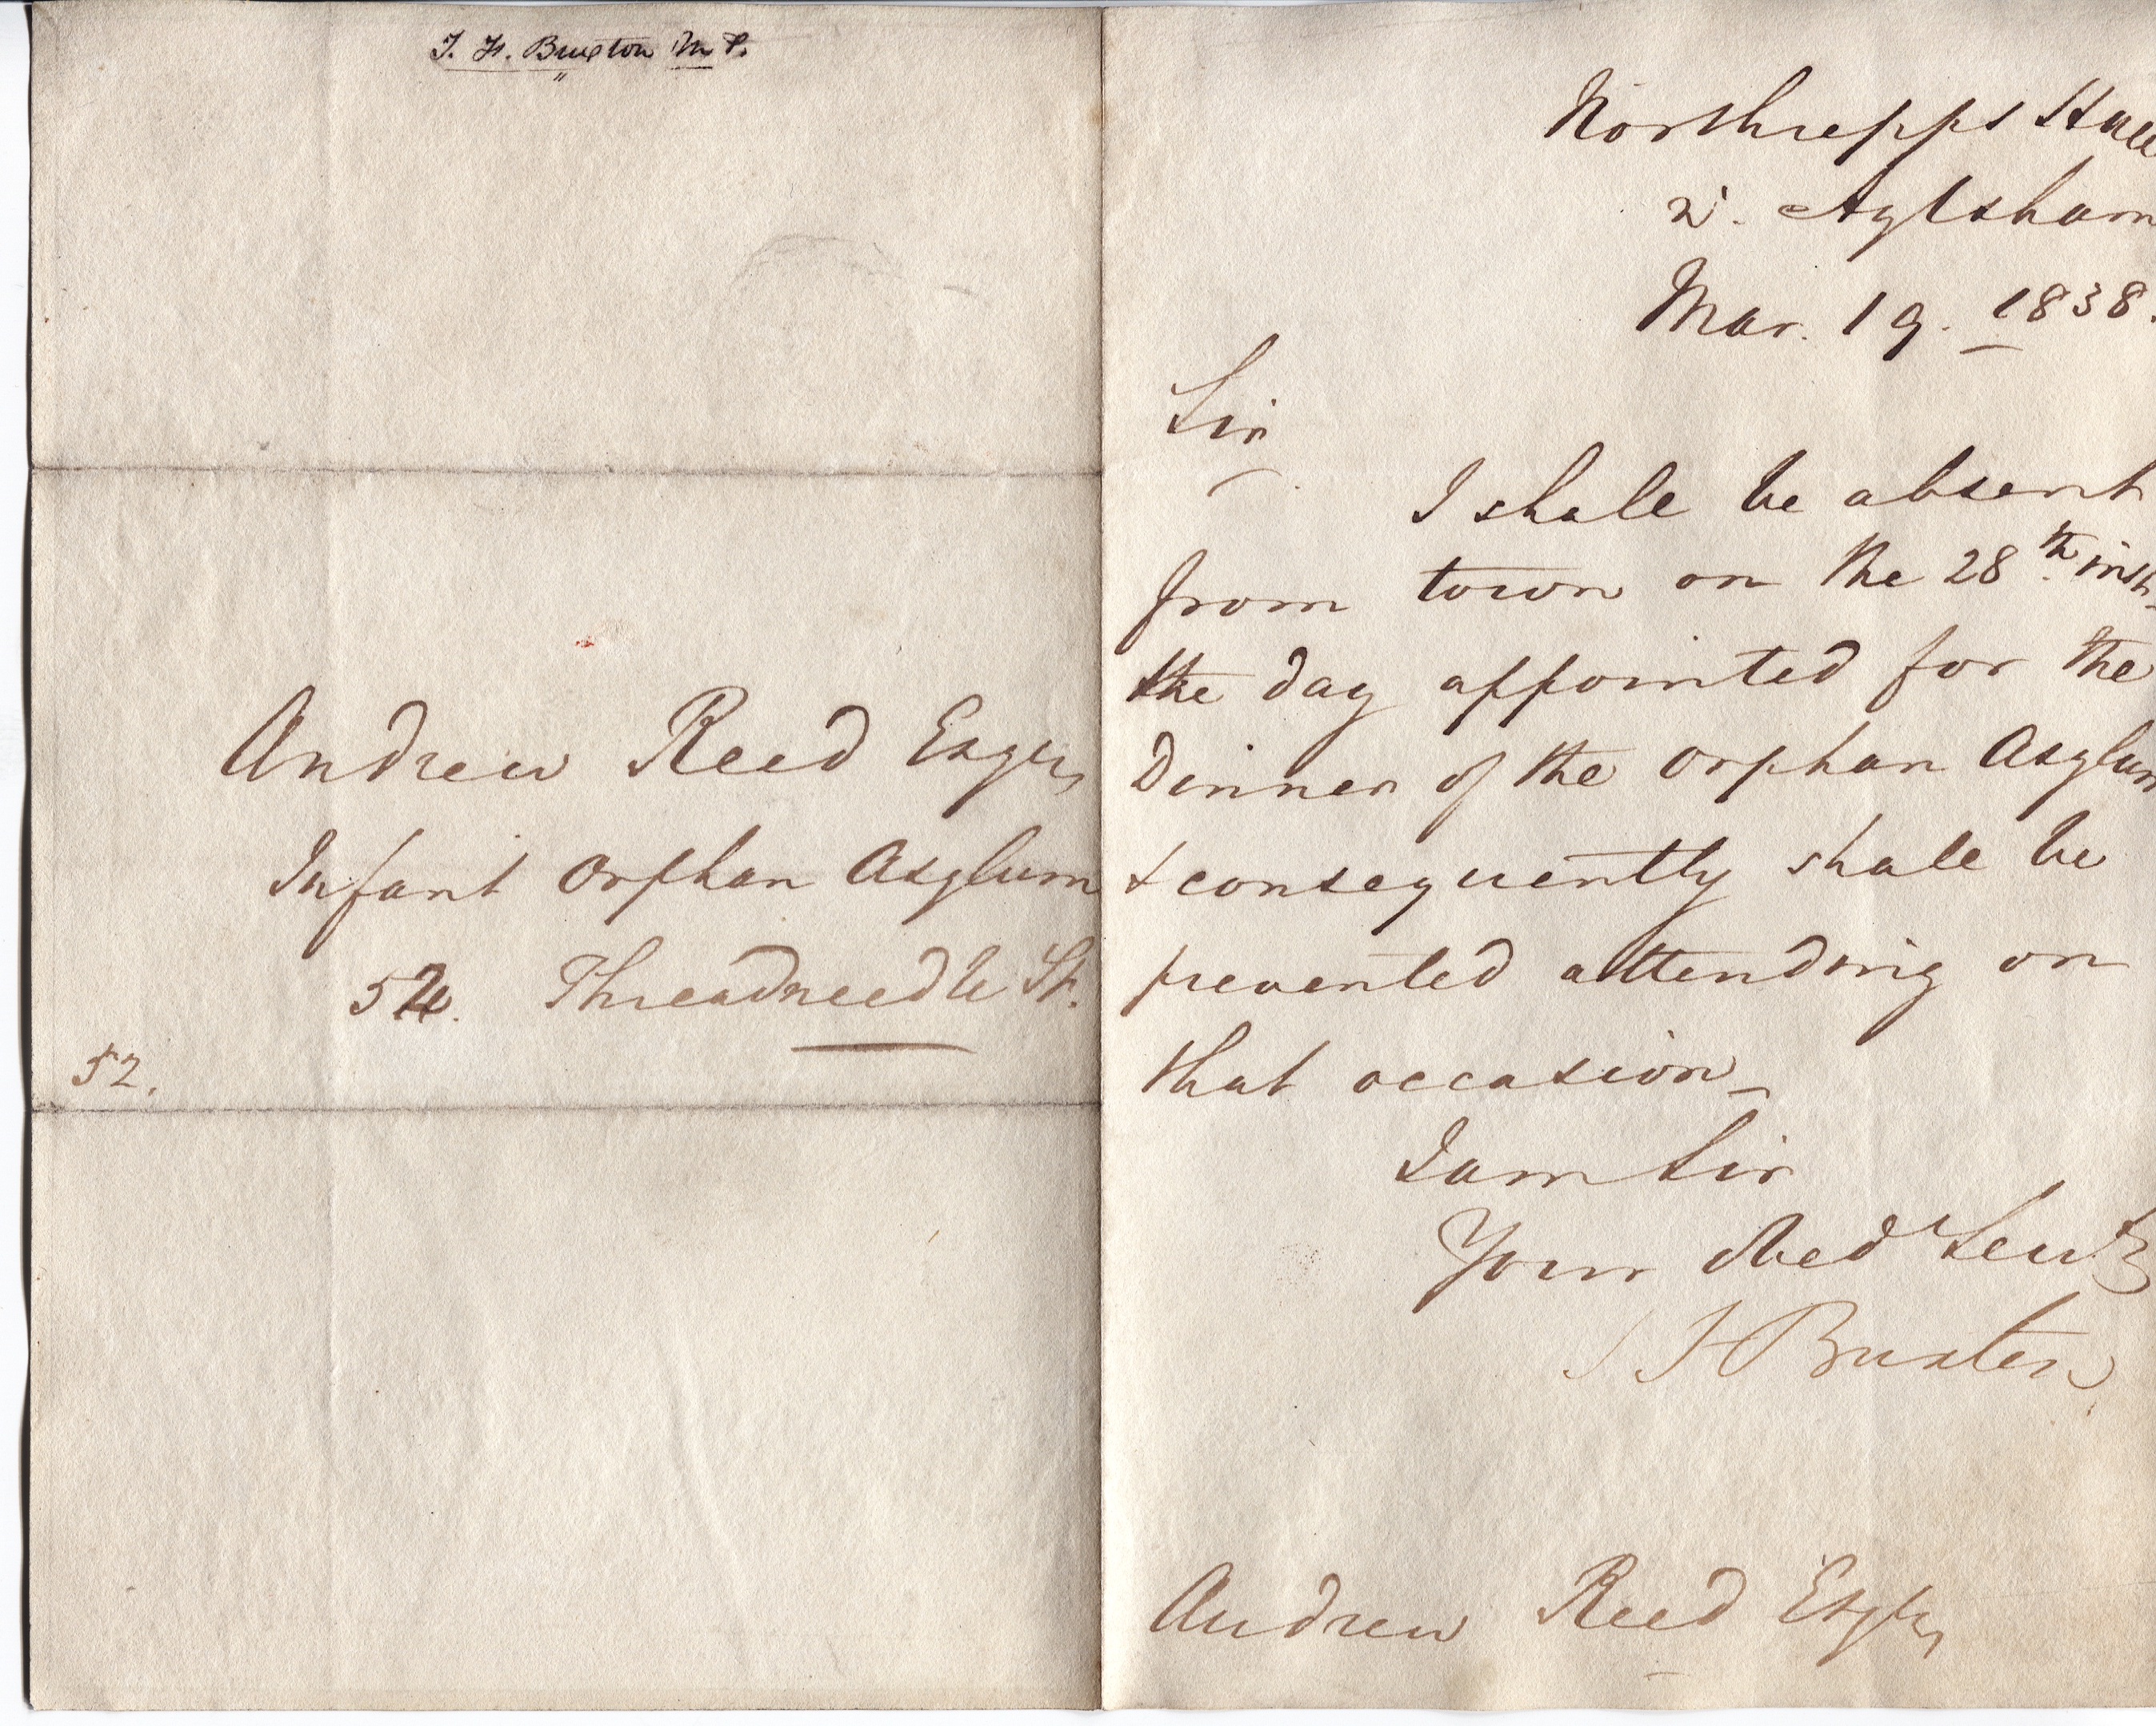 T. F. Buxton M P.
Andrew Reed Esqre,
Infant Orphan Asylum
52. Threadneedle St.
52.
Northrepps Hall
Aylsham
Mar. 19. 1838.
Sir
I shall be absent
from town on the 28th inst.
the day appointed for the
Dinner of the Orphan Asylum
& consequently shall be
prevented attending on
that occasion_
I am Sir
Your obed Servt
T F Buxton
Andrew Reed Esqre,